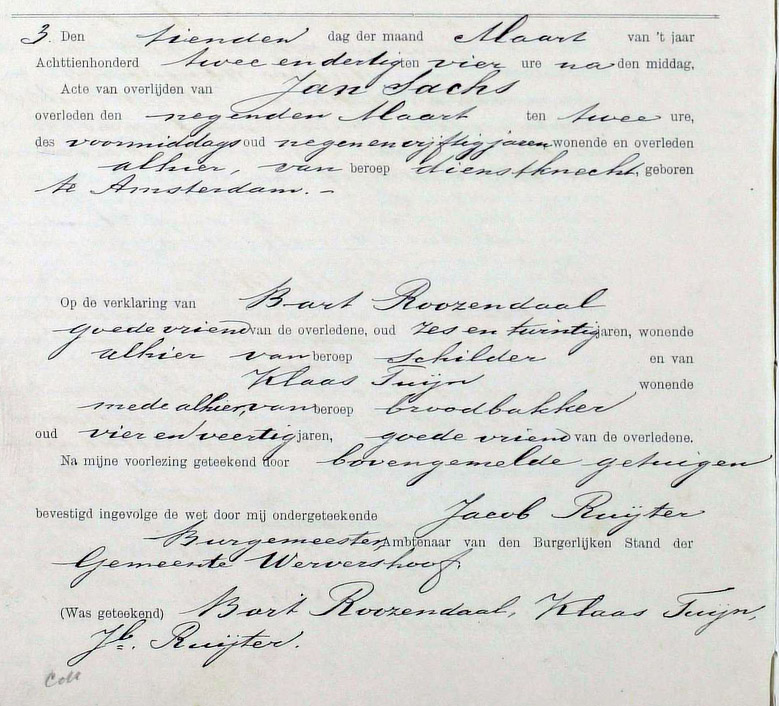 3. Den tienden dag der maand Maart van 't jaar
Achttienhonderd twee en dertig ten vier ure na den middag,
Acte van overlijden van Jan Sachs
overleden den negenden Maart ten twee ure,
des voormiddags oud negenenvijftig jaren wonende en overleden
alhier, van beroep dienstknecht, geboren
te Amsterdam. –
Op de verklaring van Bart Roozendaal
goede vriend van de overledene, oud zes en twintig jaren, wonende
alhier van beroep schilder en van
Klaas Tuijn wonende
mede alhier, van beroep broodbakker
oud vier en veertig jaren, goede vriend van de overledene.
Na mijne voorlezing geteekend door bovengemelde getuigen
bevestigd ingevolge de wet door mij ondergeteekende Jacob Ruijter
Burgemeester, Ambtenaar van den Burgerlijken Stand der
Gemeente Wervershoof.
(Was geteekend) Bart Roozendaal, Klaas Tuijn,
Jb. Ruijter.